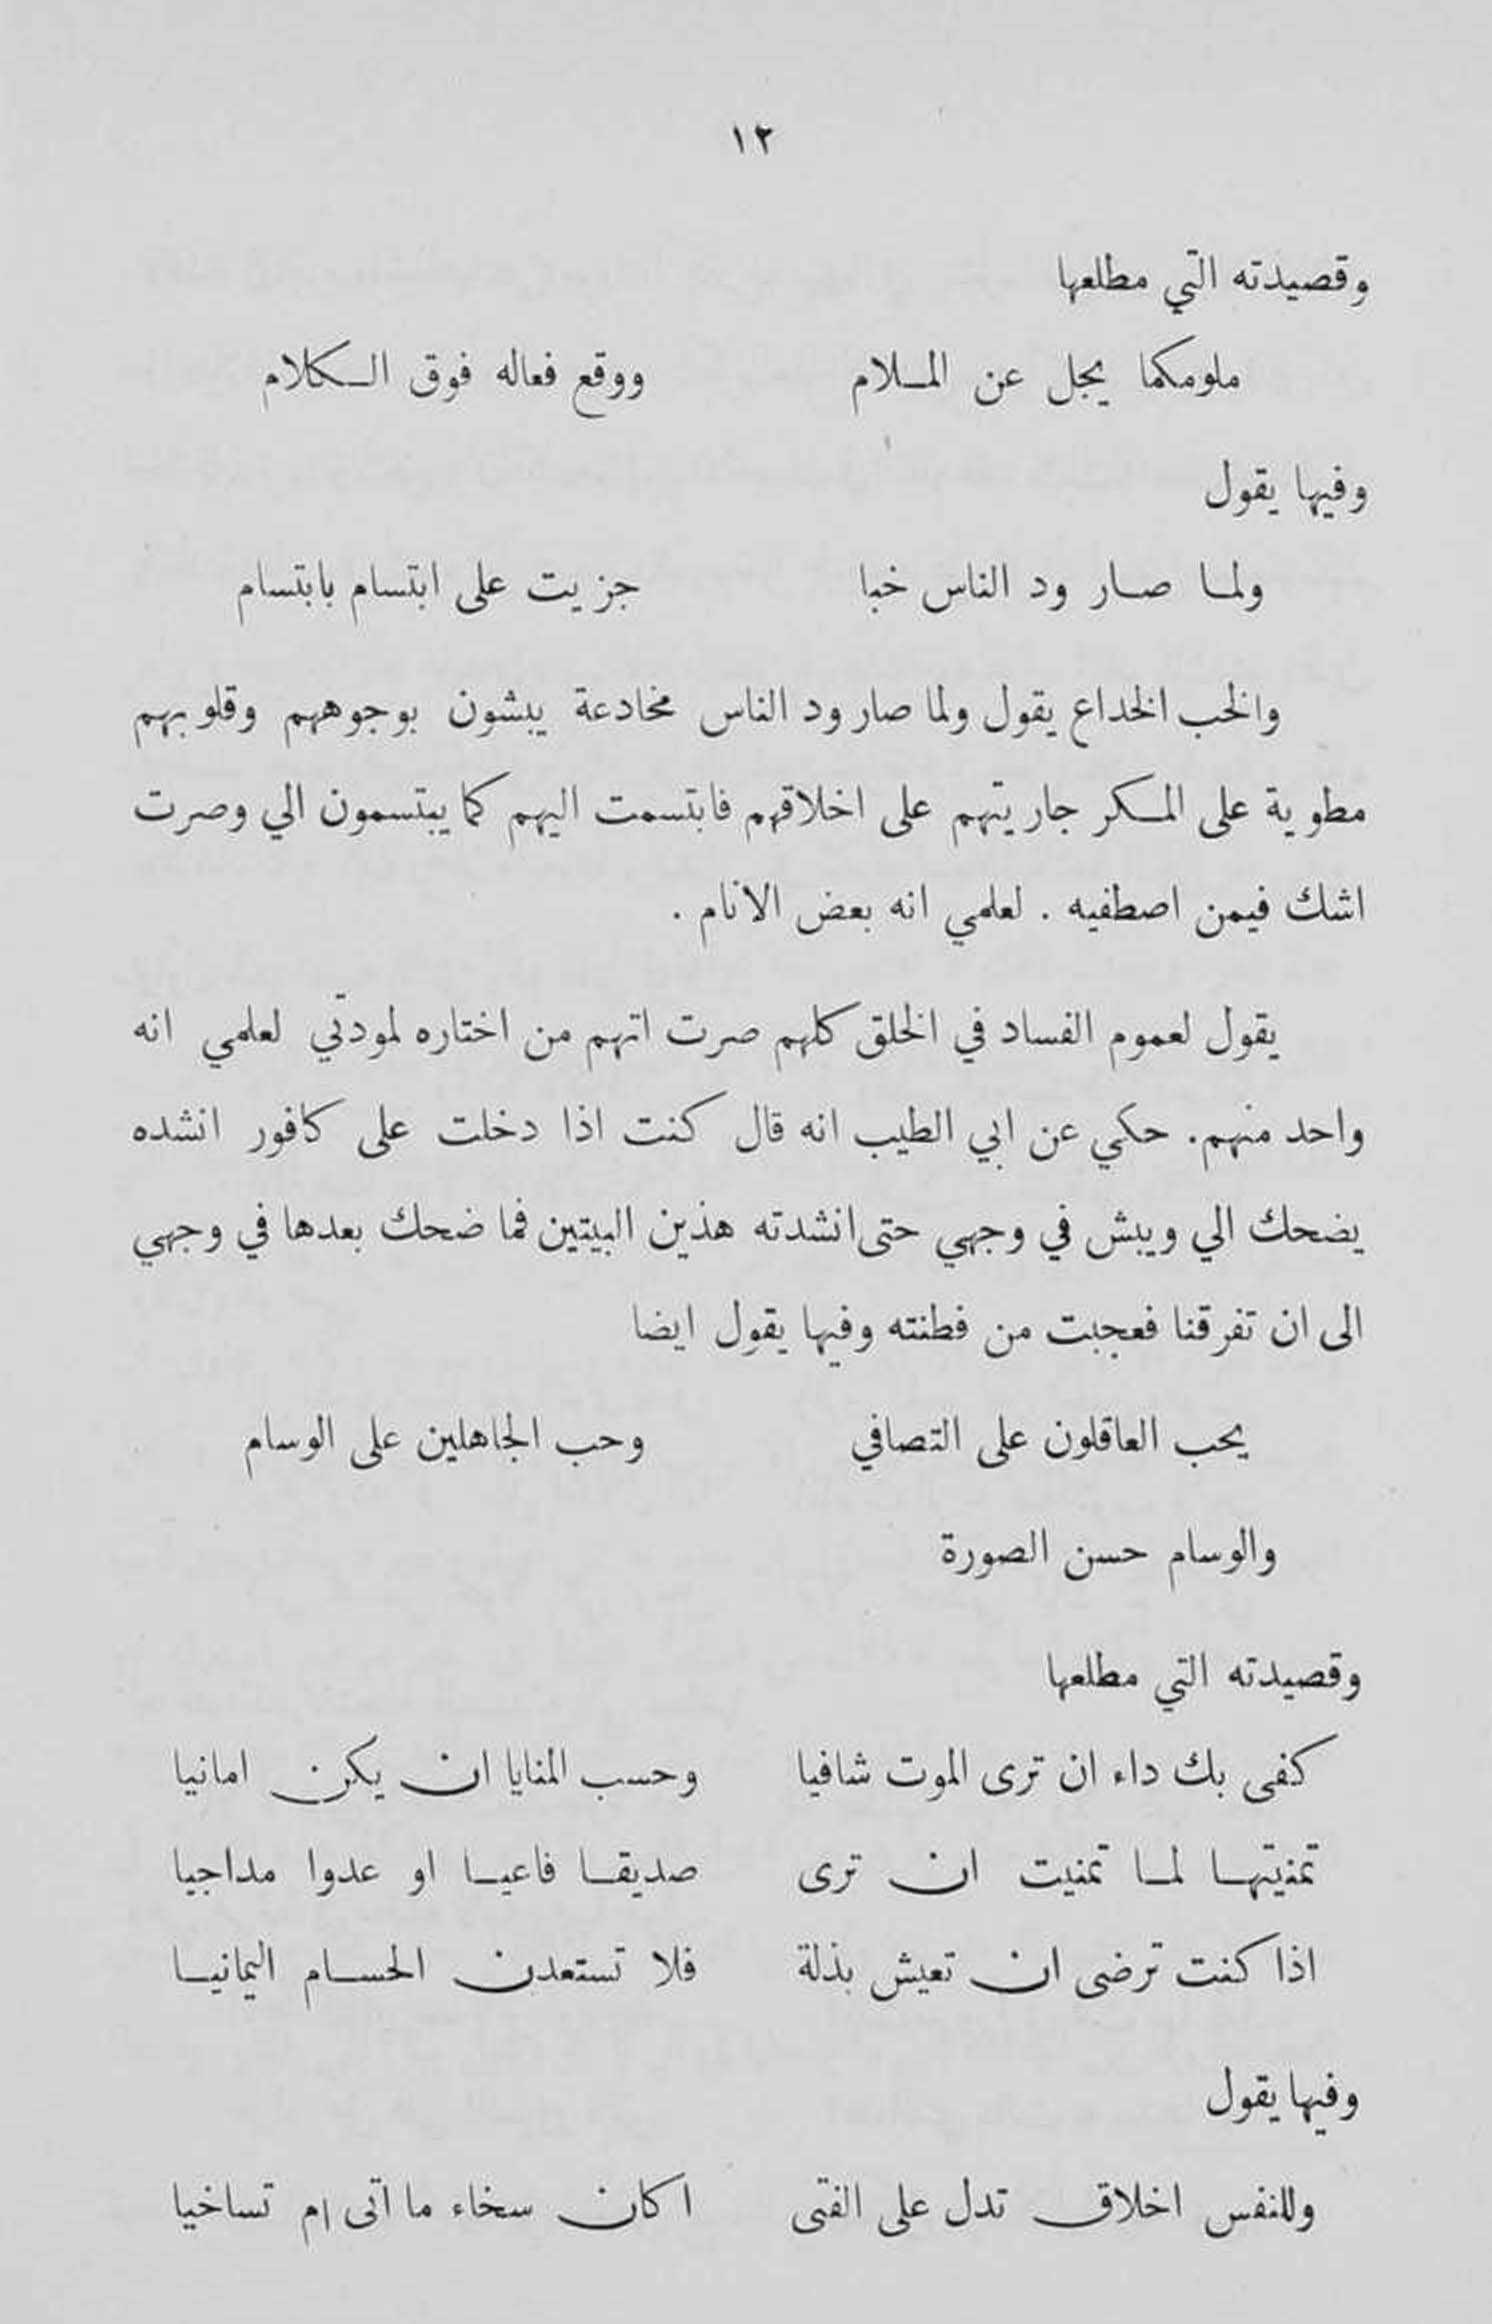 ١٢
وقصيدته التي مطلعها
ملومكما يجل عن المـلام ووقع فعاله فوق الـكلام
وفيها يقول
ولمـا صـار ود الناس خبا جزيت على ابتسام بابتسام
والخب الخداع يقول ولما صار ود الناس مخادعة يبشون بوجوههم وقلوبهم
مطوية على المـكر جاريتهم على اخلاقهم فابتسمت اليهم كما يبتسمون الي وصرت
اشك فيمن اصطفيه . لعلمي انه بعض الانام .
يقول لعموم الفساد في الخلق كلهم صرت اتهم من اختاره لمودتي لعلمي انه
واحد منهم. حكي عن ابي الطيب انه قال كنت اذا دخلت على كافور انشده
يضحك الي ويبش في وجهي حتى انشدته هذين البيتين فما ضحك بعدها في وجهي
الى ان تفرقنا فعجبت من فطنته وفيها يقول ايضا
يحب العاقلون على التصافي وحب الجاهلين على الوسام
والوسام حسن الصورة
وقصيدته التي مطلعها
كفى بك داء ان ترى الموت شافيا وحسب المنايا ان يكن امانيا
تمنيتهـا لمـا تمنيت ان ترى صديقـا فاعيـا او عدوا مداجيا
اذا كنت ترضى ان تعيش بذلة فلا تستعدن الحسـام اليمانيـا
وفيها يقول
وللنفس اخلاق تدل على الفتى اكان سخاء ما اتى ام تساخيا